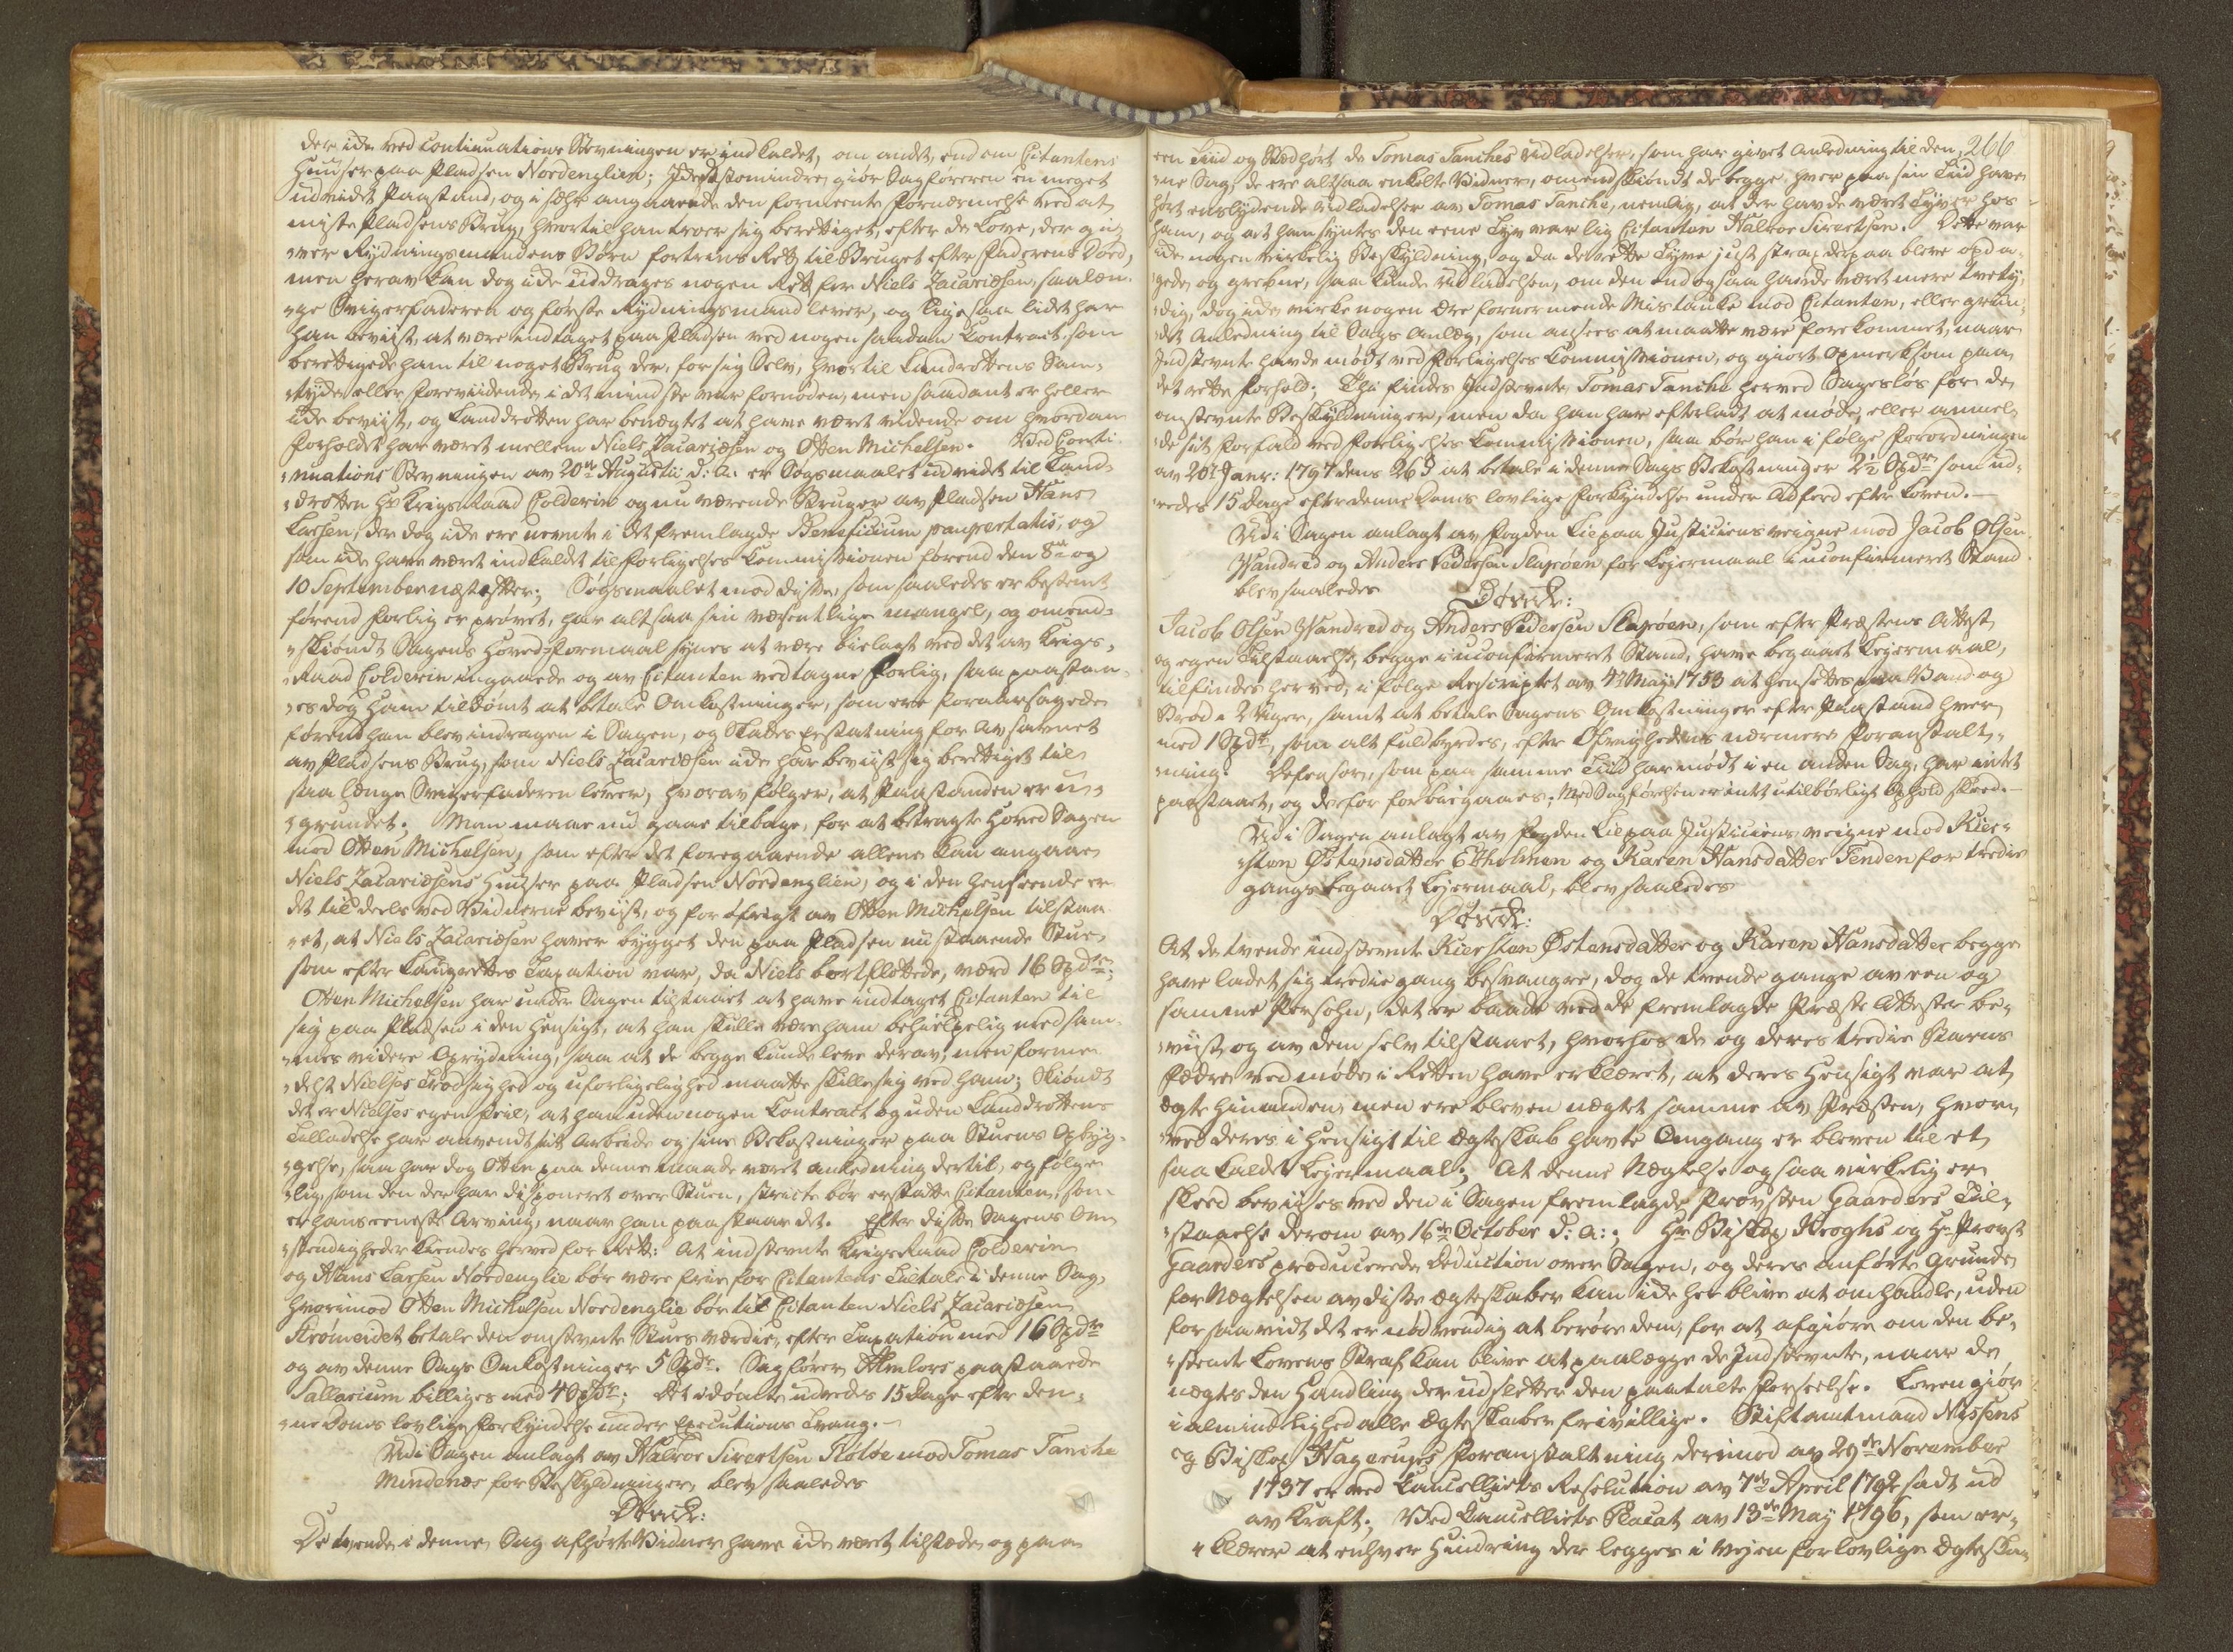 der icke ved Continuations Stevningen er indkaldet, om andet, end om Citantens
Huuser paa Pladsen Nordenglien; Icke destomindre giør Sagføreren en meget
udvidet Paastand, og i sær angaaende den formeente Fornærmelse ved at
miste Pladsens Brug, hvortil han troer sig berettiget, efter de Love, der gi-
ver Rydningsmandens Børn fortrins Rett til Bruget efter Faderens Død,
men herav kan dog icke uddrages nogen Rett for Niels Zacariæsen, saalæn-
ge Svigerfaderen og første Rydningsmand lever, og ligesaa lidet har
han beviist, at være indtaget paa Pladsen ved nogen saadan Contract, som
berettigede ham til noget Brug der, for sig Selv, hvortil Landrottens Sam-
tycke eller forevidende i det mindste var fornøden, men saadant er heller
icke beviist, og Landdrotten har benægtet at have været vidende om hvordan
Forholdet har været mellem Niels Zacariæsen og Otten Michelsen. Ved Conti-
nuations Stevningen av 20de Augustii d: a: er Søgsmaalet udvidet til Land-
drotten Hr Krigs Raad Colderin og nu værende Bruger av Pladsen Hans
Larsen, der dog icke ere nevnte i det fremlagde Beneficium paupertatis, og
som icke have været indkaldt til Forligelses Commissionen førend den 8de og
10 September næst efter; Søgsmaalet mod disse, som saaledes er bestemt
førend Forlig er prøvet, har altsaa sin væsentlige mangel, og omend-
skiøndt Sagens Hoved-Formaal synes at være bielagt ved det av Krigs-
Raad Colderin indgaaede og av Citanten vedtagne Forlig, saa paastaa-
es dog ham tildømt at btale Omkostninger, som ere foraarsagede
førend han blev indragen i Sagen, og Skades Erstatning for Av savnet
av Pladsens Brug, som Niels Zacariæsen icke har beviist sig berettiget til
saa længe Svigerfaderen lever, hvorav følger, at Paastanden er u-
grundet. Man maae nu gaae tilbage, for at betragte Hoved Sagen
mod Otten Michelsen, som efter det foregaaende allene kan angaae
Niels Zacariæsens Huuser paa Pladsen Nordenglien, og i den henseende er
det til deels ved Vidnerne beviist, og for øfrigt av Otten Michelsen tilstaa-
et, at Niels Zacariæsen haver bygget den paa Pladsen nu staaende Stue,
som efter Laugrettes Taxation var, da Niels bortfløttede, værd 16 Spdlr;
Otten Michelsen har under Sagen tilstaaet at have indtaget Citanten til
sig paa Pladsen i den Hensigt, at han skulle være ham behielpelig med sam-
mes videre Oprydning, saa at de begge kunde leve derav, men forme-
delst Nielses Trodsighed og uforligelighed maatte skille sig ved ham; Skiøndt
det er Nielses egen Feil, at han uden nogen Contract og uden Landdrottens
Tilladelse har anvendt sit Arbeide og sine Bekostninger paa Stuens Opbyg-
gelse, saa har dog Otten paa denne maade været anledning dertil, og følge-
lig, som den der har disponeret over Stuen, stricte bør erstatte Citanten, som
er hans eeneste Arving, naar han paastaar det. Efter disse Sagens Om-
stendigheder kiendes herved for Rett: At indstevnte Krigs Raad Colderin
og Hans Larsen Nordenglie bør være frie for Citantens Tiltale i denne Sag,
hvorimod Otten Michelsen Nordenglie bør til Citanten Niels Zacariæsen
Strømeidet betale den omstevnte Stues værdie, efter Taxation med 16 Spdlr
og av denne Sags Omkostninger 5 Spdr. Sagfører Almlors paastaaede
Sallarium billiges med 4 Spdr; Det idømte udredes 15 Dage efter den-
ne Doms lovlige Forkyndelse under Executions Tvang.—
Udi Sagen anlagt av Halvor Sivertsen Fløtøe mod Tomas Tanche
Mindenæs for Beskyldninger, blev saaledes
Dømt:
De tvende i denne Sag afhørte Vidner have icke været tilstæde og paa
266
een Tiid og Stæd hørt de Tomas Tanches Udladelser, som har givet Anledning til den-
ne Sag, de ere altsaa enkelte Vidner, omendskiøndt de begge hver paa sin Tiid have
hørt enslydende Udladelser av Tomas Tanche, nemlig, at der havde været Tyver hos
ham, og at han syntes den eene Tyv var lig Citanten Halvor Sivertsen. Dette var
icke nogen virkelig Beskyldning, og da de rette Tyve just strax derpaa bleve opda-
gede og grebne, saa kunde Udladelsen, om den end ogsaa havde været mere tvety-
dig, dog icke virke nogen Ære fornermende Mistanke mod Citanten, eller grun-
det Anledning til Sags Anlæg, som ansees at maatte være forekommet, naar
Indstevnte havde mødt ved Forligelses Commissionen, og giort opmerksom paa
det rette Forhold; Thi findes Indstevnte Tomas Tanche herved Sagesløs for de
omstevnte Beskyldninger, men da han har efterladt at møde, eller anmel-
de sit Forfald ved Forligelses Commissionen, saa bør han i følge Forordningen
av 20de Janr: 1797 dens 26 § at betale i denne Sags Bekostninger 2½ Spdr som ud-
redes 15 dage efter denne Doms lovlige Forkyndelse under Adferd efter Loven.—
Udi Sagen anlagt av Fogden Lie paa Justitiens veigne mod Jacob Olsen
Vandred og Anders Pedersen Slapøen for Leiermaal i uconfirmeret Stand
blev saaledes
Dømt:
Jacob Olsen Vandred og Anders Pedersen Slapøen, som efter Præstens Attest
og egen Tilstaaelse, begge i uconfirmeret Stand, have begaaet Leiermaal,
tilfindes herved, i følge Rescriptet av 4de May 1753 at hensettes paa Vand og
Brød i 2 Uger, samt at betale Sagens Omkostninger efter Paastand hver
med 1 Spdr, som alt fuldbyrdes, efter Øfrighedens nærmere Foranstalt-
ning. Defensor, som paa samme Tiid har mødt i en anden Sag, har intet
paastaaet, og derfor forbiegaaes; Med Sagførelsen er intet utilbørligt Ophold skeed.—
Udi Sagen anlagt av Fogden Lie paa Justitiens veigne mod Kier-
sten Østensdatter Ettholmen og Karen Hansdatter Fenden for tredie
gangs begaaet Leiermaal, blev saaledes
Dømt:
At de tvende indstevnte Kiersten Østensdatter og Karen Hansdatter begge
have ladet sig tredie gang besvangre, dog de tvende gange av een og
samme Persohn, det er baade ved de fremlagde Præste Attester be-
viist og av dem selv tilstaaet, hvorhos de og deres tredie Barns
Fædre ved møde i Retten have erklæret, at deres Hensigt var at
ægte hinanden, men ere bleven nægtet samme av Præsten, hvor-
ved deres i Hensigt til Ægteskab havte Omgang er bleven til et
saa kaldet Leiermaal; At denne Nægtelse ogsaa virkelig er
skeed bevises ved den i Sagen fremlagde Provsten Gaarders Til-
staaelse derom av 16de October d: a:. Hr Biskop Kroghs og Hr Provst
Gaarders producerede Deduction over Sagen, og deres anførte Grunde
for Nægtelsen av disse Ægteskaber kan icke her blive at omhandle, uden
for saavidt det er nødvendig at berøre dem, for at afgiøre om den be-
stemte Lovens Straf kan blive at paalægge de Indstevnte, naar de
nægtes den Handling der udsletter den paatalte Forseelse. Loven giør
i almindelighed alle Ægteskaber frivillige. Stiftamtmand Nissens
og Biskop Hagerups Foranstaltning derimod av 29de November
1737 er ved Cancelliets Resolution av 7de April 1792 sadt ud
av Kraft; Ved Cancelliets Placat av 13de May 1796, som er-
klærer at enhver Hindring der legges i Vejen for lovlige Ægteska-